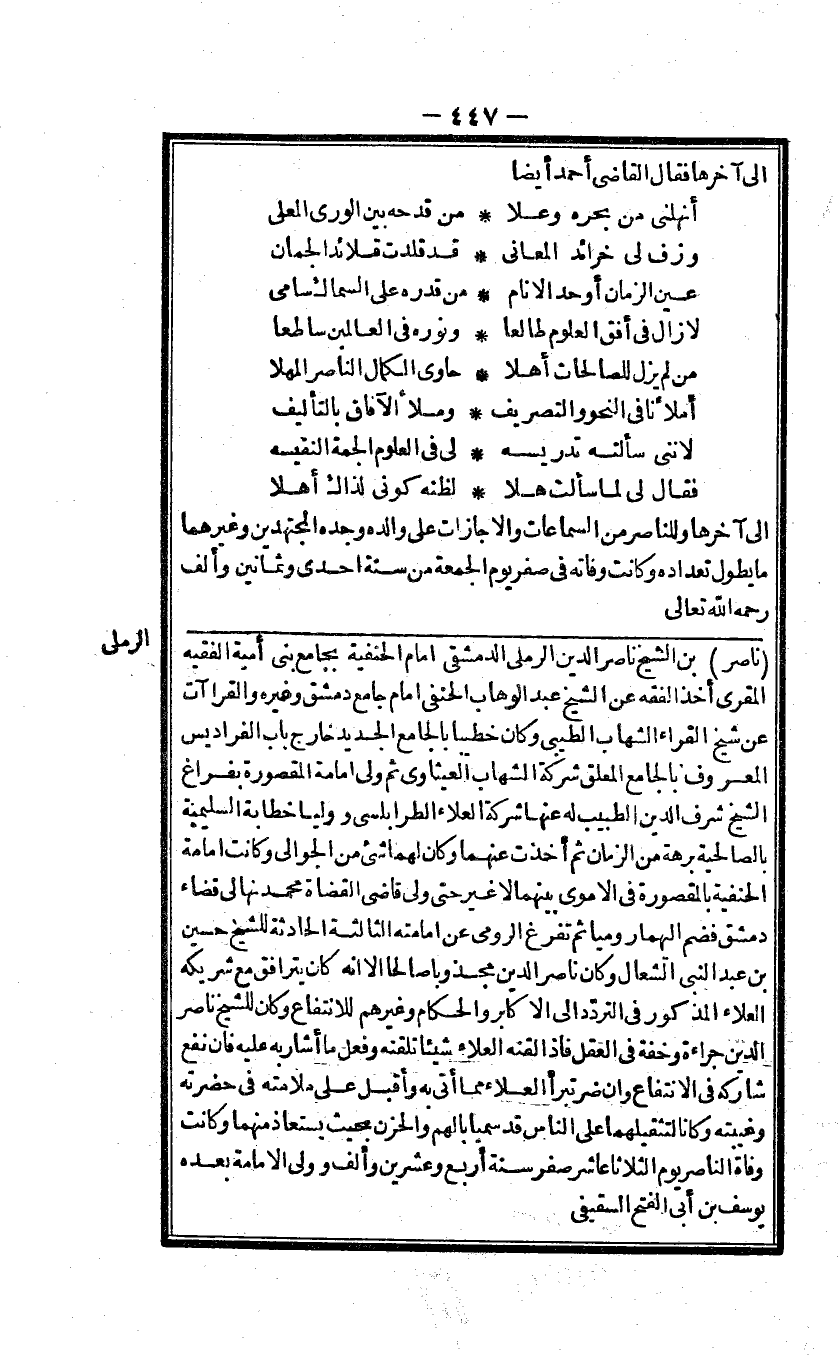 — ٤٤٧ —
الى آخرها فقال القاضى أحمد أيضا
أنهلنى من بحره وعلا * من قدحه بين الورى المعلى
وزف لى خرائد المعانى * قد قلدت قلائد الجمان
عين الزمان أوحد الانام * من قدره على السماك سامى
لازال فى أفق العلوم طالعا * ونوره فى العالمين ساطعا
من لم يزل للصالحات أهلا * حاوى الكمال الناصر المهلا
أملأنا فى النحو والتصريف * وملأ الآفاق بالتأليف
لاننى سألته تدريسه * لى فى العلوم الجمة النفيسه
فقال لى لما سألت هلا * لظنه كونى لذاك أهلا
الى آخرها وللناصر من السماعات والاجازات على والده وجده المجتهدين وغيرهما
ما يطول تعداده وكانت وفاته فى صفر يوم الجمعة من سنة احدى وثمانين وألف
رحمه الله تعالى
الرملى
(ناصر) بن الشيخ ناصر الدين الرملى الدمشقى امام الحنفية بجامع بنى أمية الفقيه
المقرى أخذ الفقه عن الشيخ عبد الوهاب الحنفى امام جامع دمشق وغيره والقراآت
عن شيخ القراء الشهاب الطيبى وكان خطيبا بالجامع الجديد خارج باب الفراديس
المعروف بالجامع المعلق شركة الشهاب العيثاوى ثم ولى امامة المقصورة بفراغ
الشيخ شرف الدين الطبيب له عنها شركة العلاء الطرابلسى ووليا خطابة السليمية
بالصالحية برهة من الزمان ثم أخذت عنهما وكان لهما شئ من الجوالى وكانت امامة
الحنفية بالمقصورة فى الاموى بينهما لا غير حتى ولى قاضى القضاة محمد نهالى قضاء
دمشق فضم اليهما روميا ثم تفرغ الرومى عن امامته الثالثة الحادثة للشيخ حسين
بن عبد النبى الشعال وكان ناصر الدين مجذوبا صالحا الا انه كان يترافق مع شريكه
العلاء المذكور فى التردد الى الاكابر والحكام وغيرهم للانتفاع وكان للشيخ ناصر
الدين جراءة وخفة فى العقل فاذا لقنه العلاء شيئا تلقنه وفعل ما أشار به عليه فان نفع
شاركه فى الانتفاع وان ضر تبرأ العلاء مما أتى به وأقبل على ملامته فى حضرته
وغيبته وكانا لتثقيلهما على الناس قد سميا بالهم والحزن بحيث يستعاذ منهما وكانت
وفاة الناصر يوم الثلاثا عاشر صفر سنة أربع وعشرين وألف وولى الامامة بعده
يوسف بن أبى الفتح السقيفى